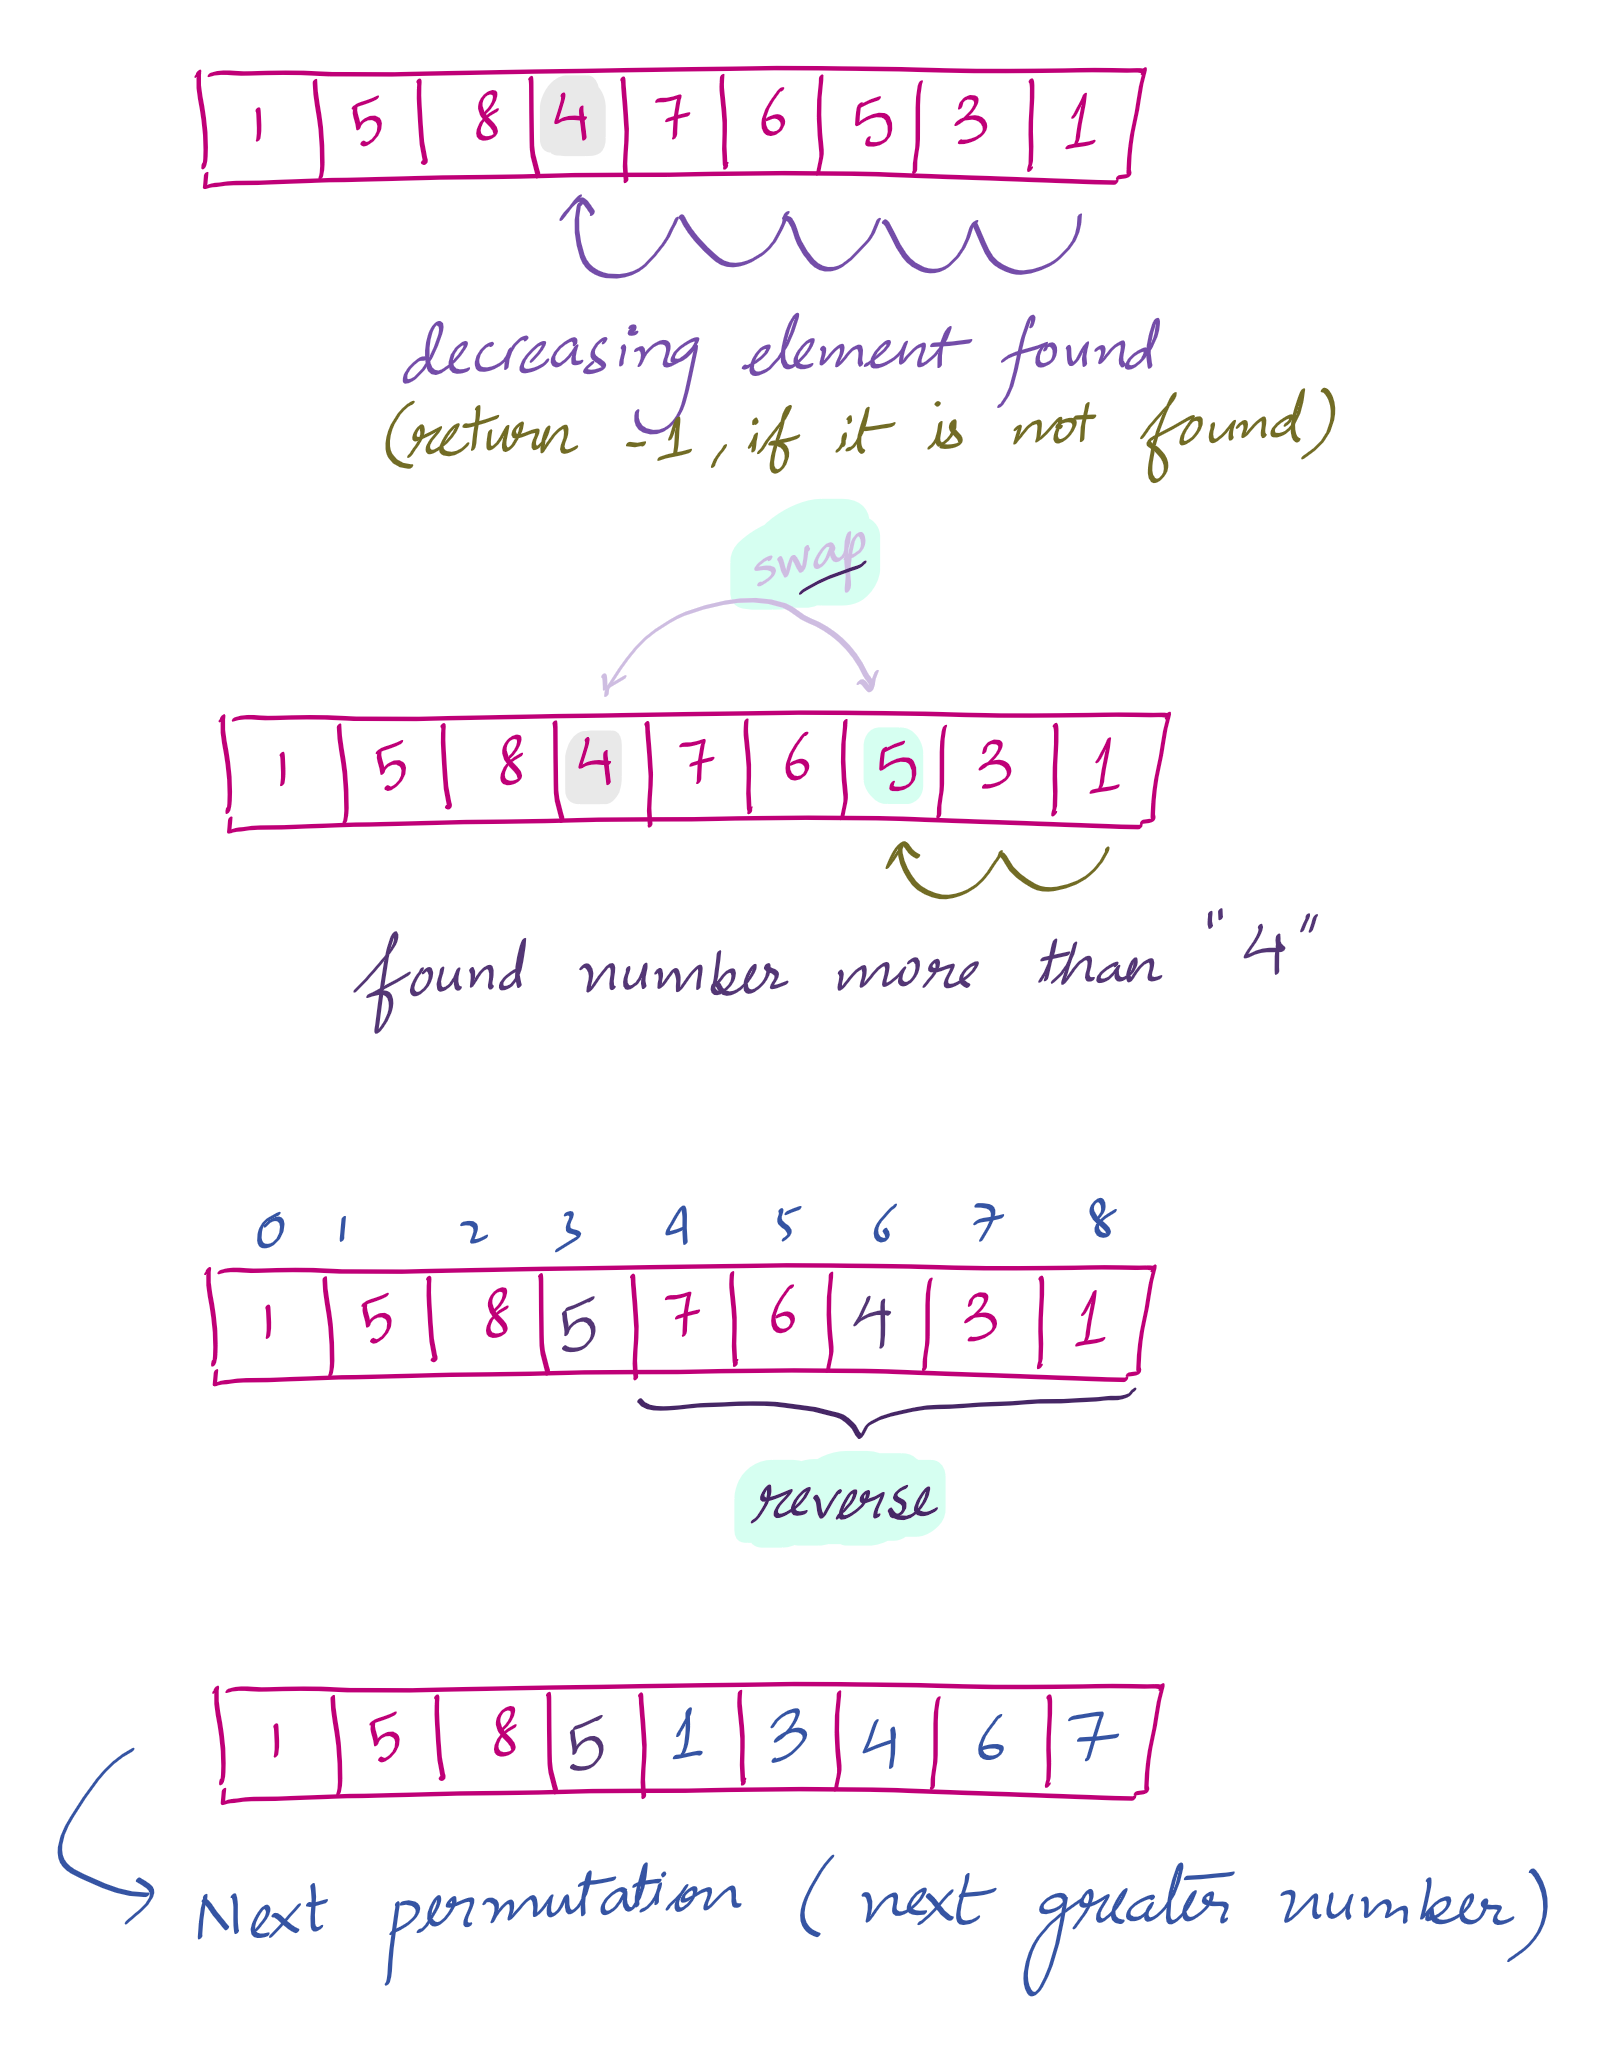 1 5 8 4 7 6 5 3 1
decreasing element found
(return -1, if it is not found)
swap
1 5 8 4 7 6 5 3 1
found number more than "4"
0 1 2 3 4 5 6 7 8
1 5 8 5 7 6 4 3 1
reverse
1 5 8 5 1 3 4 6 7
Next permutation (next greater number)